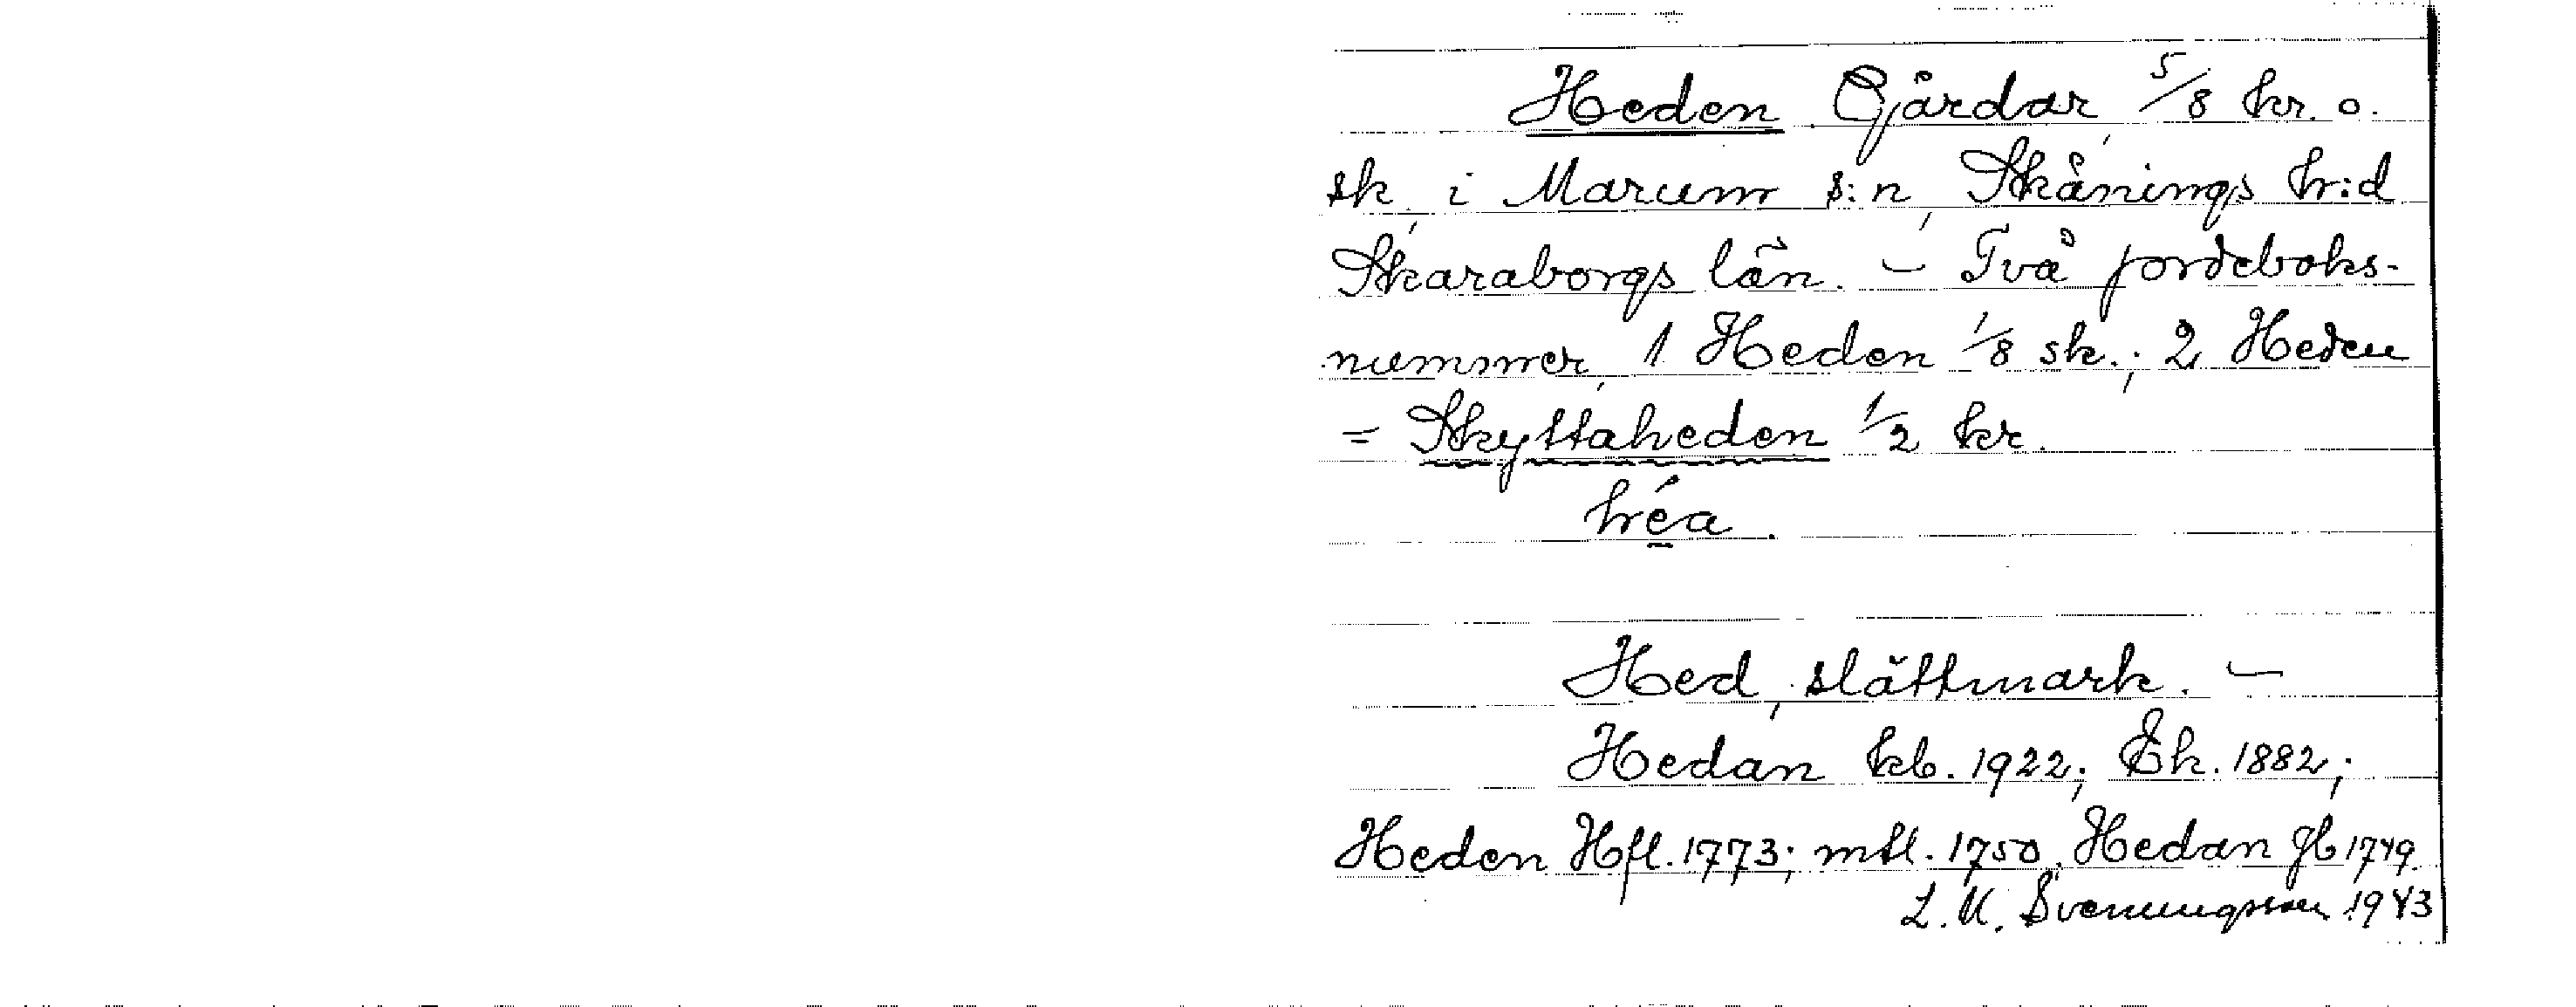 Heden Gårdar, 5/8 kr. o.
sk, i Marum s:n, Skånings h:d
Skaraborgs län. – Två jordeboks-
nummer, 1 Heden 1/8 sk.; 2 Heden
= Skyttaheden 1/2 kr.
héa.
Hed, slättmark. –
Hedan kb. 1922; Ek. 1882;
Heden Hfl. 1773; mtl. 1750, Hedan Jb 1749.
L. M. Svenungsson 1943